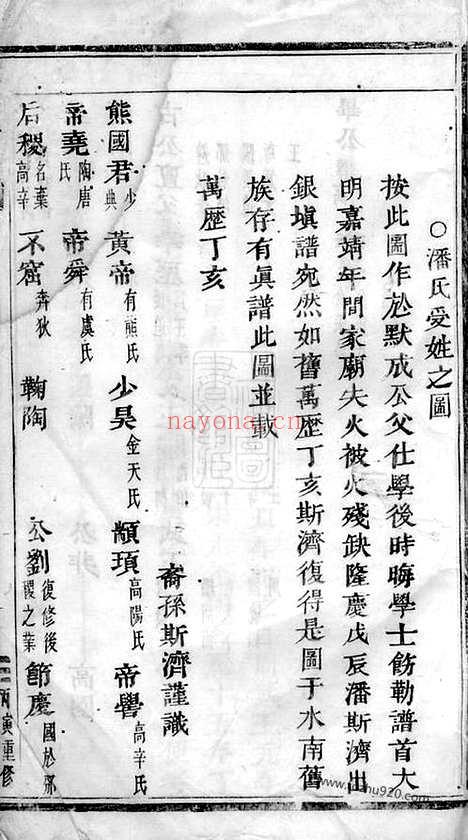 ○潘氏受姓之圖
按此圖作於默成公父仕學後時晦學士飭勒譜首大
明嘉靖年間家廟失火被火殘缺隆慶戊辰潘斯濟出
銀塡譜宛然如舊萬歷丁亥斯濟復得是圖于水南舊
族存有眞譜此圖並載
萬歷丁亥
裔孫斯濟謹識
熊國君少典 黃帝有熊氏 少昊金天氏 顓頊高陽氏 帝嚳高辛氏
帝堯陶唐氏 帝舜有虞氏
后稷名棄高辛 不窋奔狄 鞠陶 公劉復修後稷之業 節慶國於邠
丙寅重修
nayona.cn
www.nanhu920.com